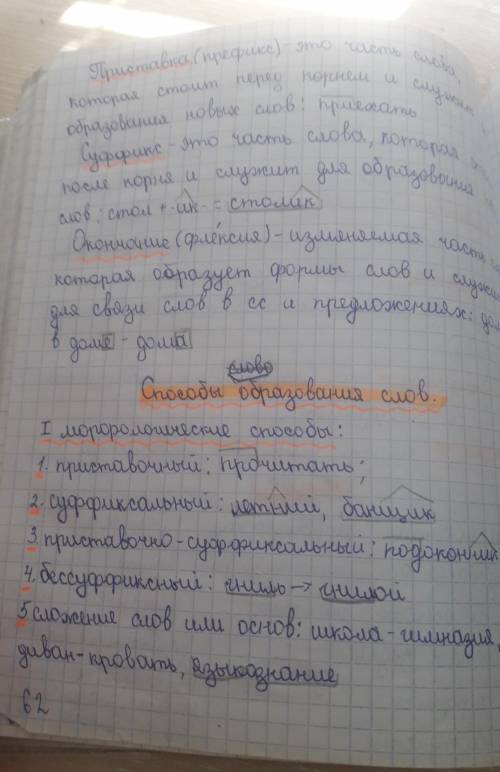 Приставка (префикс) - это часть слова,
которая стоит перед корнем и служит
образования новых слов: приехать
Суффикс - это часть слова, которая
после корня и служит для образования
слов: стол + -ик- = столик
Окончание (флексия) - изменяемая часть
которая образует формы слов и служи
для связи слов в сс и предложениях: до
в доме - дома
слово
Способы образования слов.
I морфологические способы:
1. приставочный: прочитать;
2. суффиксальный: летний, банщик
3. приставочно-суффиксальный: подоконник
4. бессуффиксный: гниль → гнилой
5 сложение слов или основ: школа-гимназия,
диван-кровать, языкознание
62